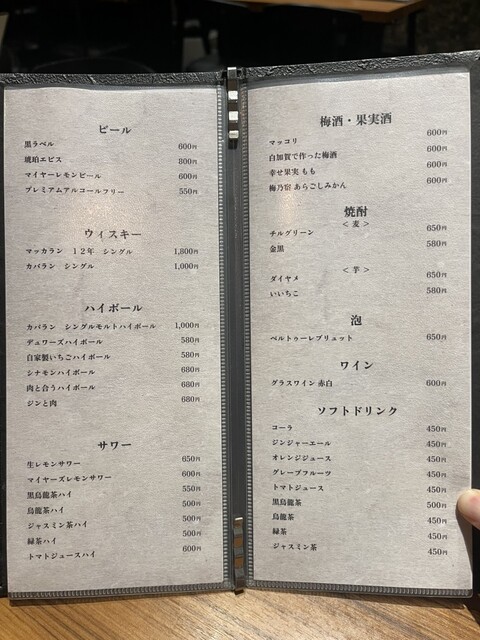 ビール
黒ラベル 600円
琥珀エビス 800円
マイヤーレモンビール 600円
プレミアムアルコールフリー 550円
ウィスキー
マッカラン 12年 シングル 1,800円
カバラン シングル 1,000円
ハイボール
カバラン シングルモルトハイボール 1,000円
デュワーズハイボール 580円
自家製いちごハイボール 580円
シナモンハイボール 680円
肉と合うハイボール 680円
ジンと肉 680円
サワー
生レモンサワー 650円
マイヤーズレモンサワー 600円
黒烏龍茶ハイ 550円
烏龍茶ハイ 500円
ジャスミン茶ハイ 500円
緑茶ハイ 500円
トマトジュースハイ 600円
梅酒・果実酒
マッコリ 600円
白加賀で作った梅酒 600円
幸せ果実 もも 600円
梅乃宿 あらごしみかん 600円
焼酎
＜麦＞
チルグリーン 650円
金黒 580円
＜芋＞
ダイヤメ 650円
いいちこ 580円
泡
ベルトゥーレブリュット 650円
ワイン
グラスワイン 赤白 600円
ソフトドリンク
コーラ 450円
ジンジャーエール 450円
オレンジジュース 450円
グレープフルーツ 450円
トマトジュース 450円
黒烏龍茶 500円
烏龍茶 450円
緑茶 450円
ジャスミン茶 450円